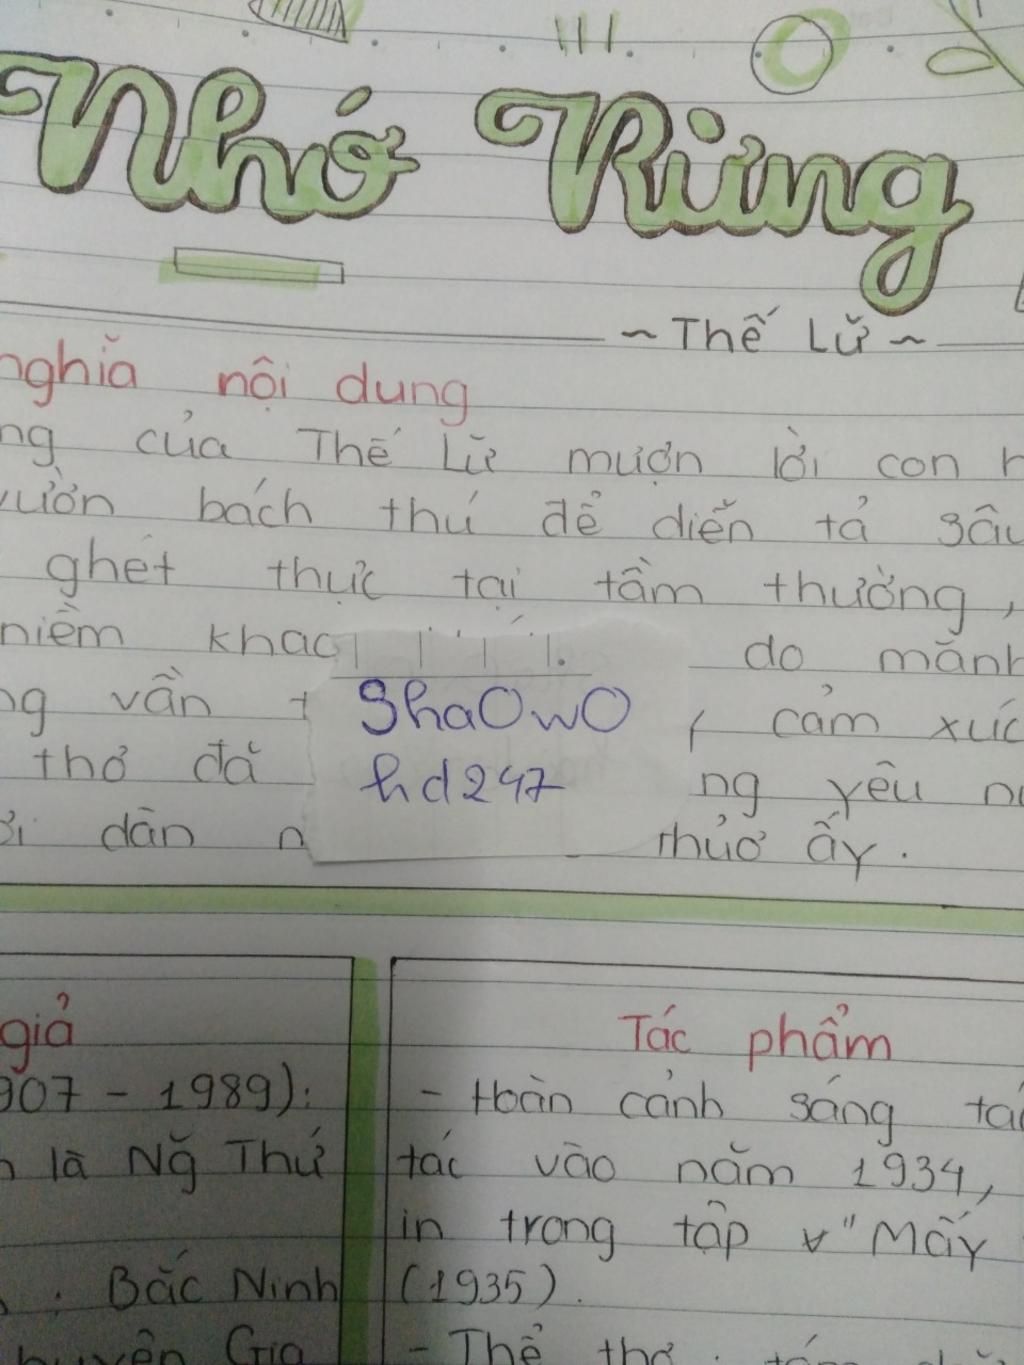 Nhớ Rừng
~ Thế Lữ ~
nghĩa nội dung
của Thế Lữ mượn lời con
vườn bách thú để diễn tả sâu
ghét thực tại tầm thường,
niềm khao do mãnh
vần cảm xúc
ShaOwO
thơ đã yêu
hd247
dân thuở ấy.
giả
1907 - 1989):
là Ng̃ Thứ
Bắc Ninh
huyện Gia
Tác phẩm
- Hoàn cảnh sáng
tác vào năm 1934,
in trong tập "Mấy
(1935).
- Thể thơ :